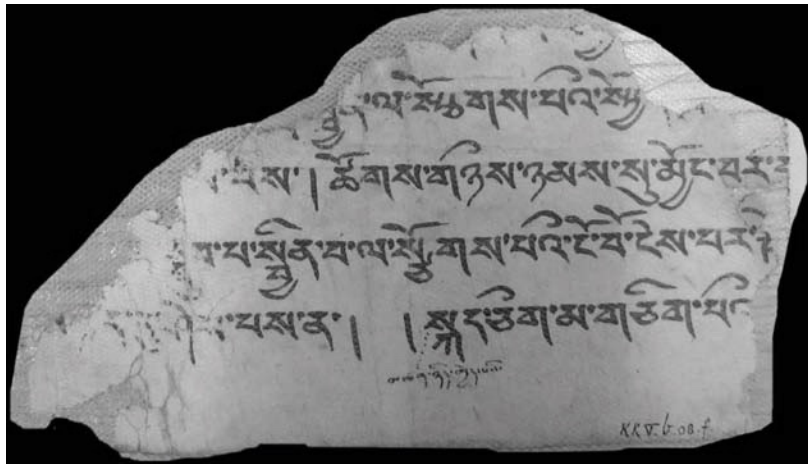 ལ་སྩོགས་པའི་
པས་། ཚོགས་གཉིས་ཉམས་སུ་མྱོང་བར་
པ་སྦྱིན་བ་ལ་སྩོགས་པའི་ངོ་བོ་ངེས་པར་
པས་ན་། །སྐད་ཅིག་མ་གཅིག་པའི
KK.V.b.08.f